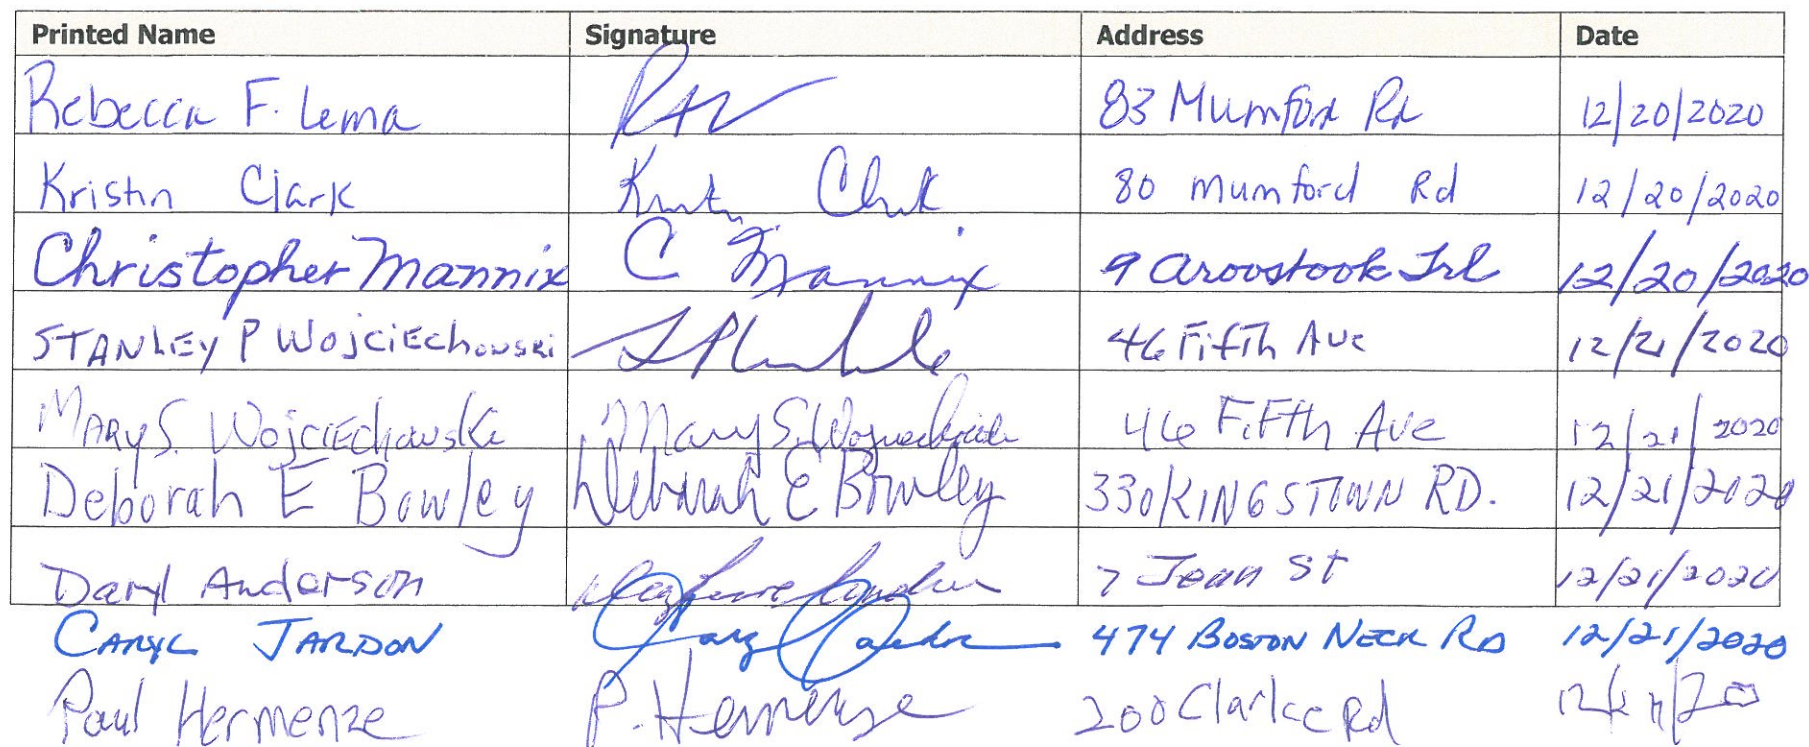 Printed Name Signature Address Date
Rebecca F. Lema 83 Mumford Rd 12/20/2020
Kristin Clark Kristin Clark 80 Mumford Rd 12/20/2020
Christopher Mannix C Mannix 9 Aroostook Trl 12/20/2020
STANLEY P WOJCIEchowski 46 FifTh Ave 12/21/2020
MARY S. WojciEchowski Mary S. Wojciechowski 46 FiFTh Ave 12/21/2020
Deborah E Bowley Deborah E Bowley 330 KINGSTOWN RD. 12/21/2020
Daryl Anderson 7 Jean St 12/21/2020
CARYL JARDON 474 BOSTON NECK RD 12/21/2020
Paul Hermenze P. Hermenze 200 Clarke Rd